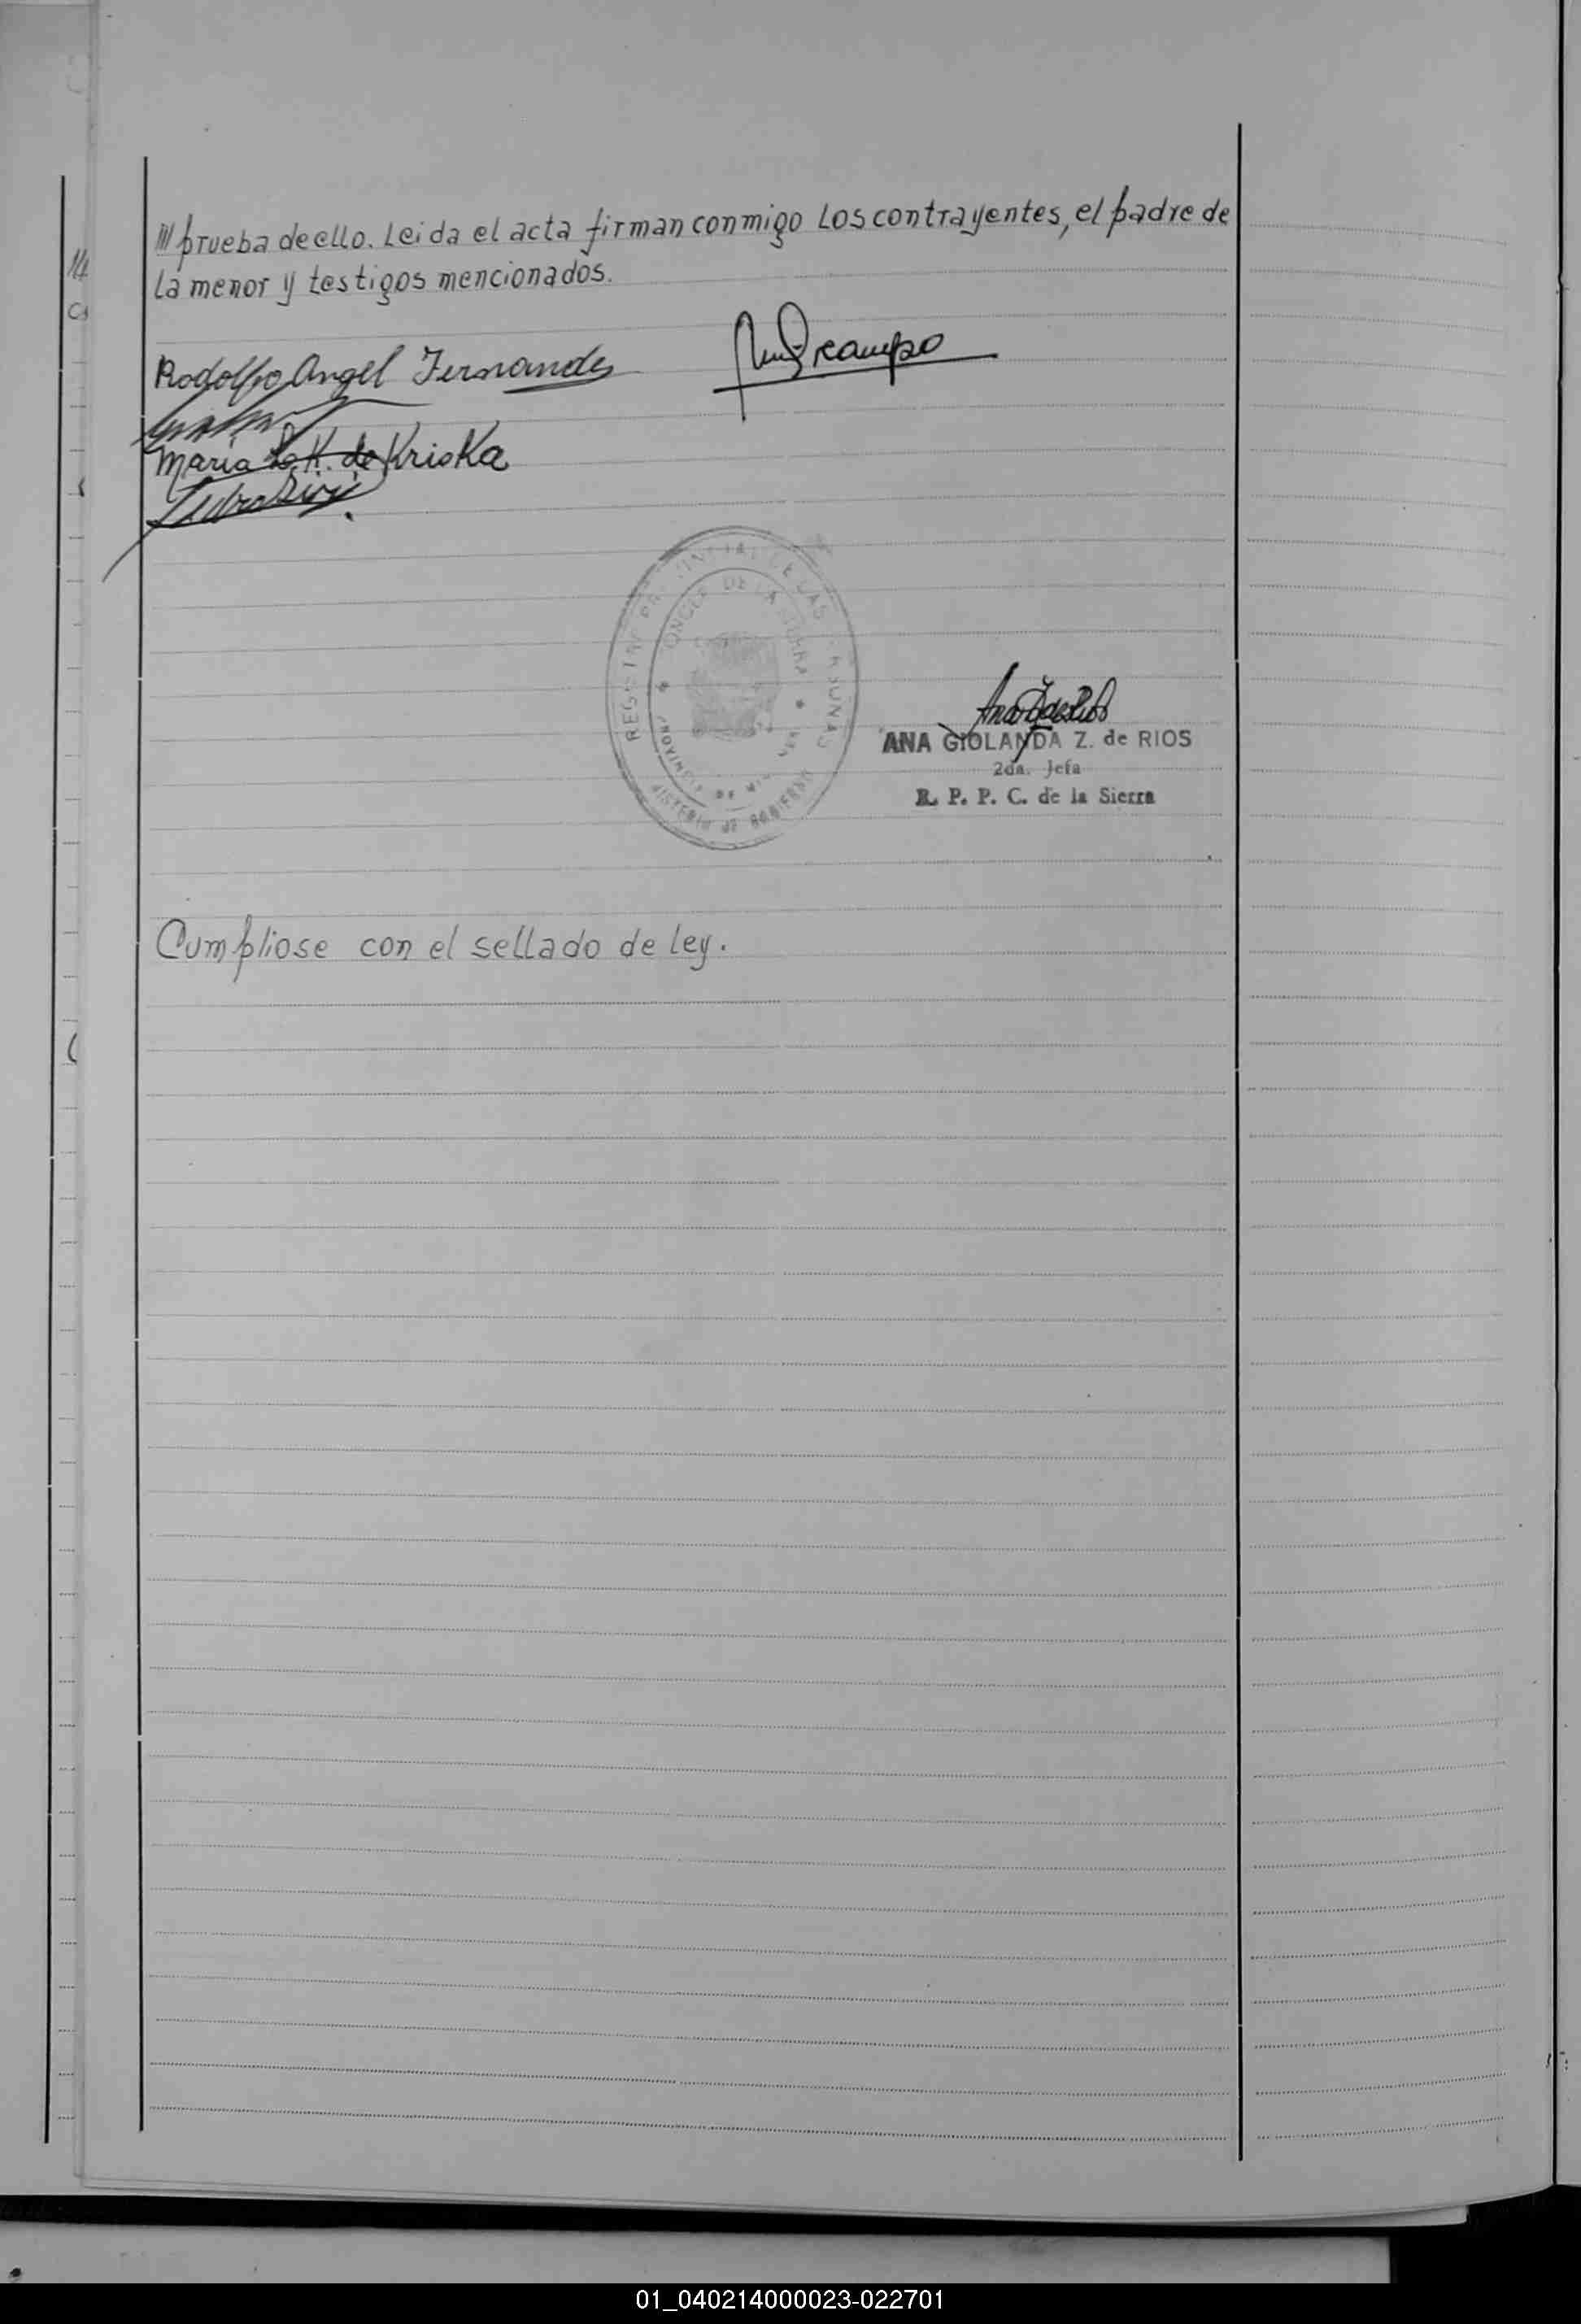 /// prueba de ello. Leida el acta firman conmigo los contrayentes, el padre de
la menor y testigos mencionados.
Rodolfo Angel Fernandez
Ocampo
Maria L. H. de Kriska
REGISTRO PROVINCIAL DE LAS PERSONAS
CONCEP. DE LA SIERRA
PROVINCIA DE MISIONES
MINISTERIO DE GOBIERNO
Ana Z de Rios
ANA GIOLANDA Z. de RIOS
2da. Jefa
R. P. P. C. de la Sierra
Cumpliose con el sellado de ley.
01_040214000023-022701